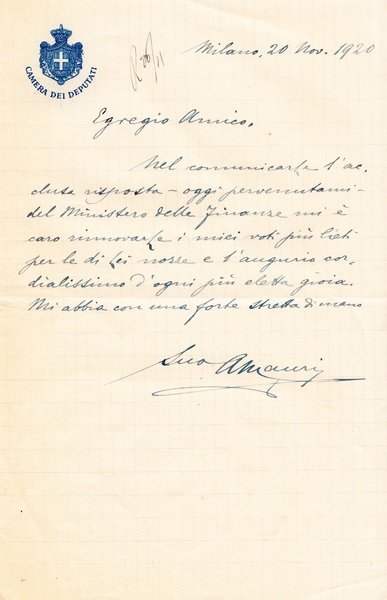 CAMERA DEI DEPUTATI
R 20/11
Milano, 20 Nov. 1920
Egregio Amico,
Nel comunicarLe l'ac-
clusa risposta – oggi pervenutami –
del Ministero delle Finanze mi è
caro rinnovarLe i miei voti più lieti
per le di Lei nozze e l'augurio cor-
dialissimo d'ogni più eletta gioia.
Mi abbia con una forte stretta di mano
Suo AMauri